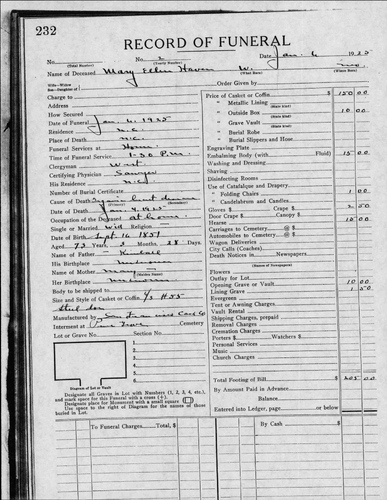 232
RECORD OF FUNERAL
No. No. 2 Date Jan. 6 1925
(Total Number) (Yearly Number)
Name of Deceased Mary Ellen Haven W.
(What Race) (Where Born)
Wife—Widow
Son—Daughter of Order Given by
Charge to
Address
How Secured
Date of Funeral Jan. 6. 1925
Residence N.C.
Place of Death N.C.
Funeral Services at Home
Time 1-30 P.M.
Clergyman West
Certifying Physician Sawyer
His Residence N.C.
Number of Burial Certificate
Cause of Death Organic heart disease
Date of Death Jan. 4 1925
Occupation of the Deceased at home
Single or Married Wid Religion
Date of Birth Sept. 16. 1851
Aged 73 Years, 3 Months, 28 Days.
Name of Father Kimball
His Birthplace
Name of Mother
Her Birthplace
Body to be shipped to
Size and Style of Casket or Coffin
Manufactured by
Interment at Pine Grove Cemetery
Lot or Grave No. Section No.
1.
2.
3.
4.
5.
6.
Diagram of Lot or Vault
Designate all Graves in Lot with Numbers (1, 2, 3, 4, etc.), and mark space for this Funeral with a cross (+).
Designate place for Monument with a small square
Use space to the right of Diagram for the names of those buried in Lot.
Price of Casket or Coffin $ 150 00
" Metallic Lining
(State Kind)
" Outside Box 10 00
(State Kind)
" Grave Vault
(State Kind)
" Burial Robe
(State Kind)
" Burial Slippers and Hose
Engraving Plate
Embalming Body (with Fluid) 15 00
Washing and Dressing
Shaving
Disinfecting Rooms
Use of Catafalque and Drapery
" Folding Chairs 1 00
" Candelabrum and Candles
Gloves $ Crape $ 2 50
Door Crape $ Canopy $
Hearse 15 00
Carriages to Cemetery @ $
Automobiles to Cemetery @ $
Wagon Deliveries
City Calls (Coaches)
Death Notices in Newspapers
(Names of Newspapers)
Flowers
Outlay for Lot
Opening Grave or Vault 10 00
Lining Grave 1 50
Evergreen
Tent or Awning Charges
Vault Rental
Shipping Charges, prepaid
Removal Charges
Cremation Charges
Porters $ Watchers $
Personal Services
Music
Church Charges
Total Footing of Bill $ 205 00
By Amount Paid in Advance
Balance
Entered into Ledger, page or below
To Funeral Charges, Total $ By Cash $